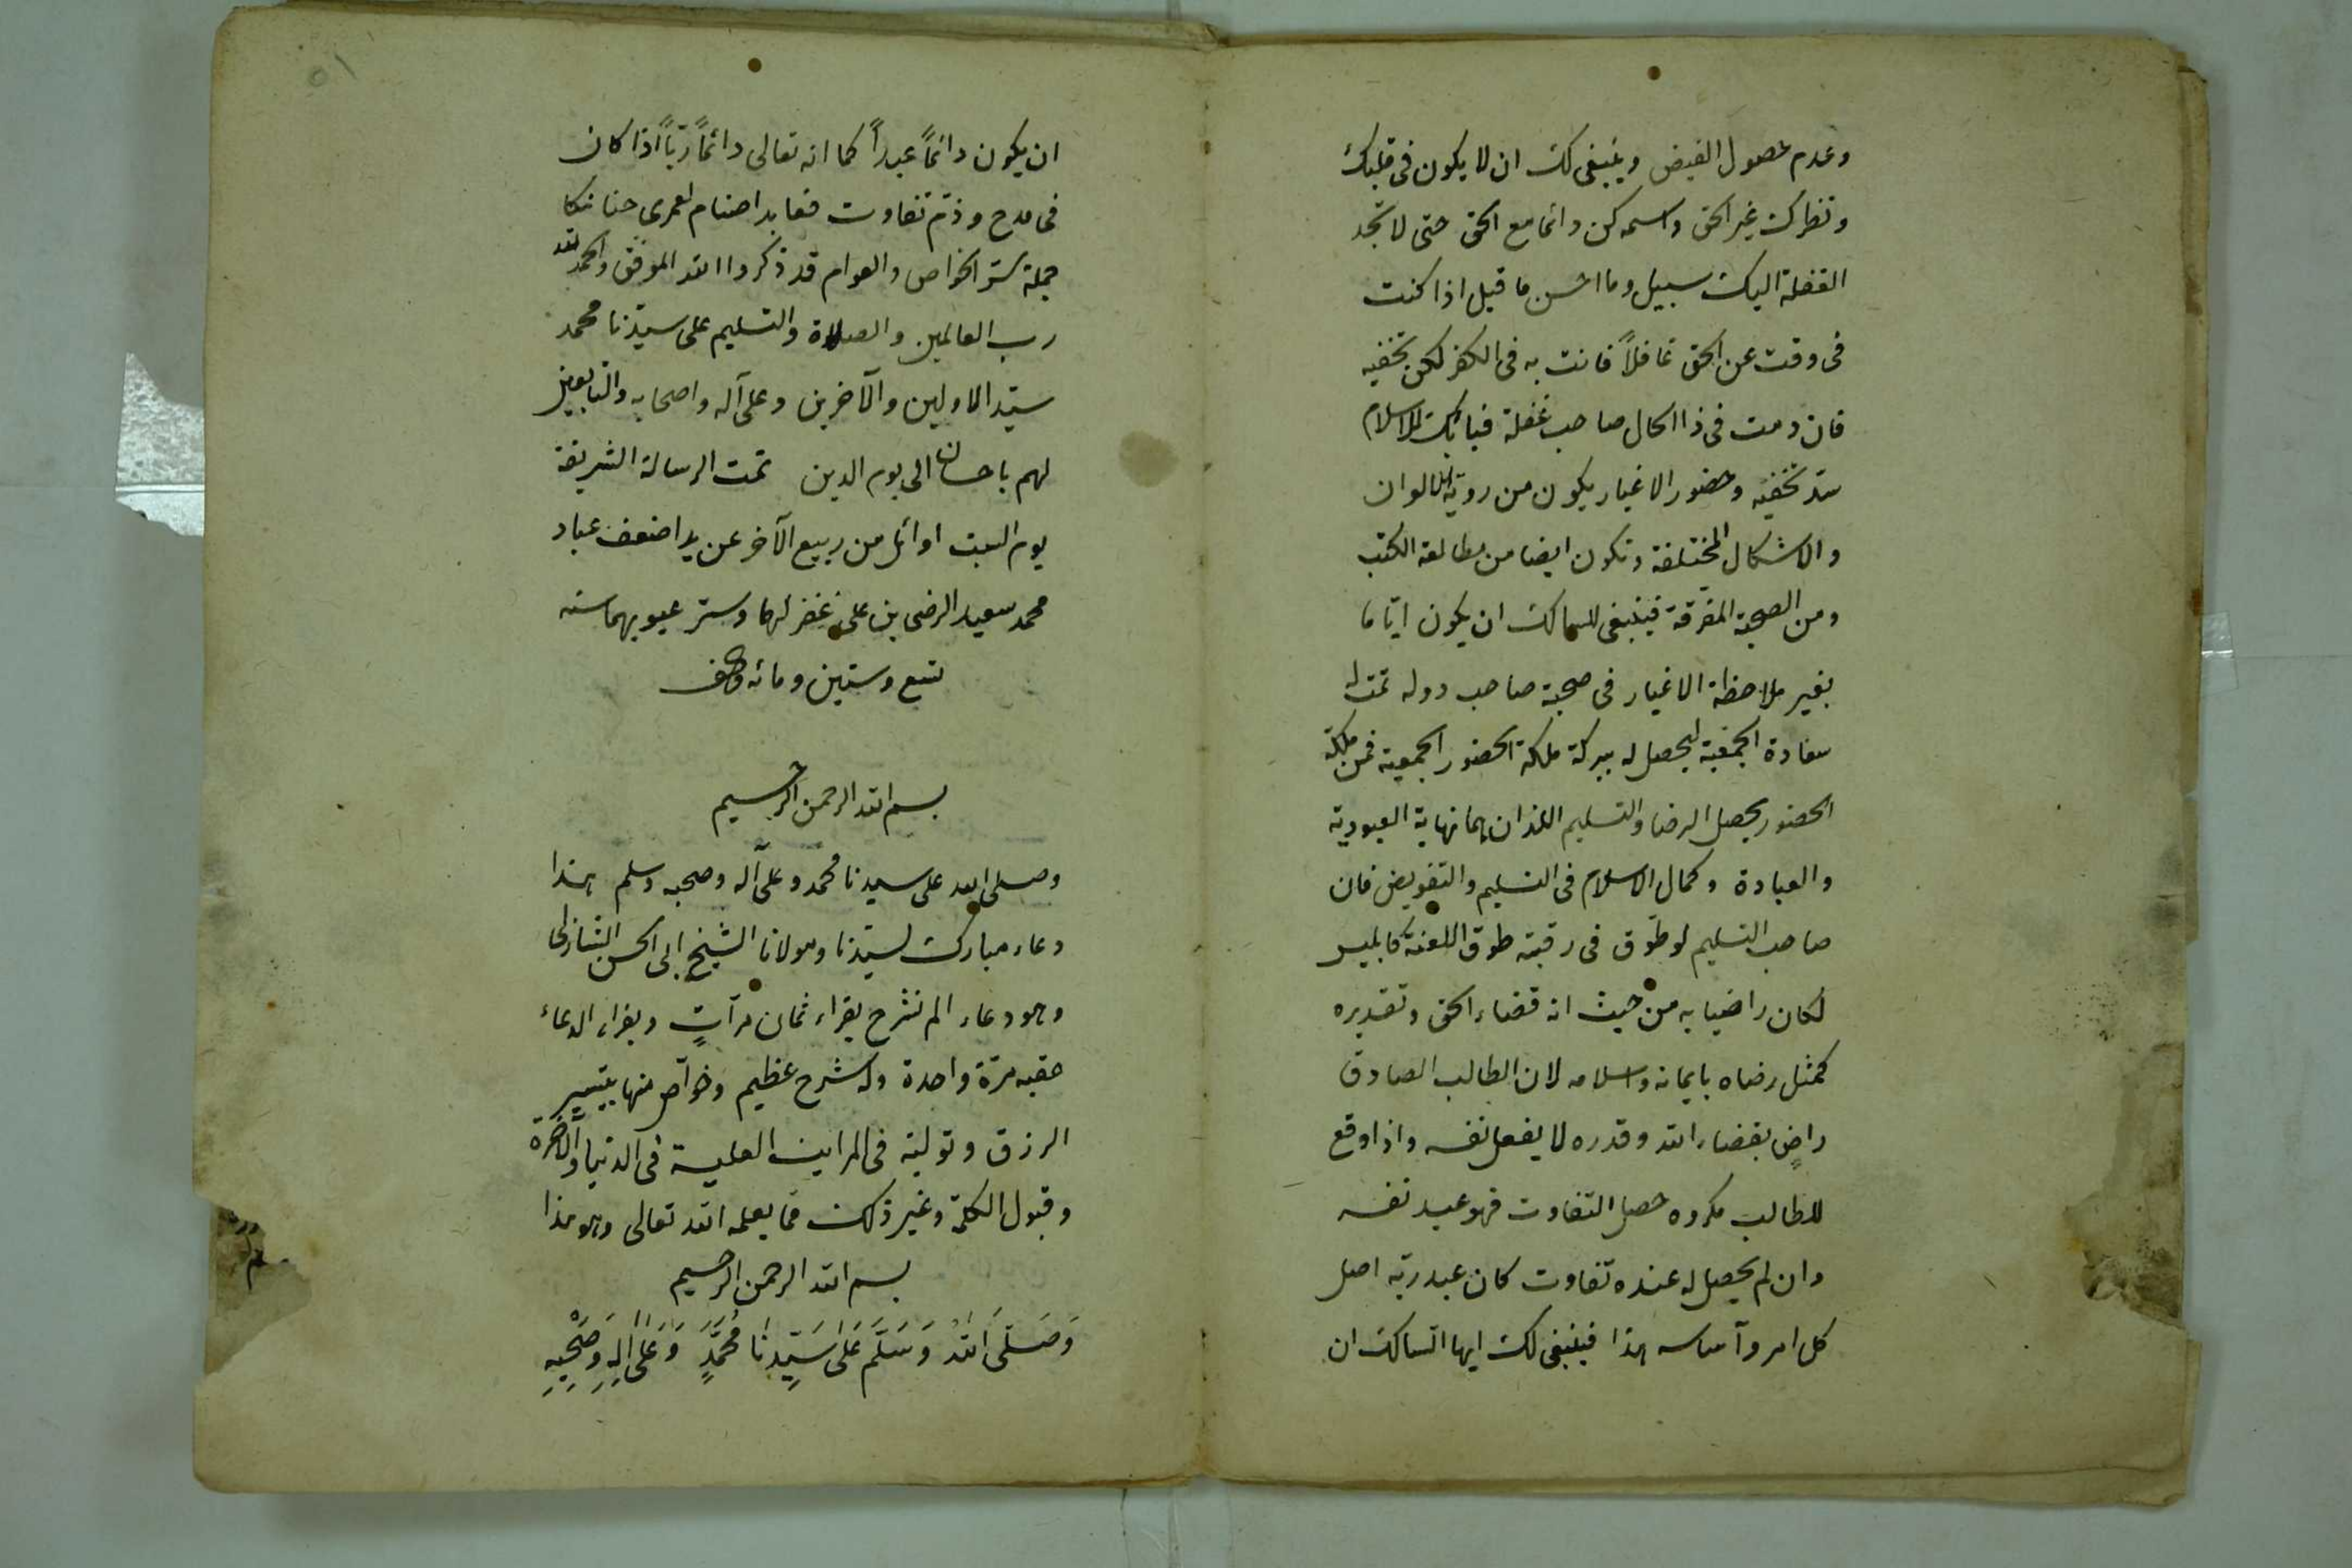 وعدم حصول الفيض وينبغى لك ان لا يكون فى قلبك
ونظرك غير الحق واسمه كن دائما مع الحق حتى لا تجد
الغفلة اليك سبيل وما احسن ما قيل اذا كنت
فى وقت عن الحق غافلاً فانت به فى الكفر لكن بخفيه
فان دمت فى ذا الحال صاحب غفلة فبابك للاسلام
سد بخفيه وحضور الاغيار يكون من روية الالوان
والاشكال المختلفة وتكون ايضا من مطالعة الكتب
ومن الصحبة المفرقة فينبغى للسالك ان يكون ايّاما
بغير ملاحظة الاغيار فى صحبة صاحب دوله
سعادة الجمعية ليحصل له ببركة ملكة الحضور الجمعية فمن ملكة
الحضور يحصل الرضا والتسليم اللذان هما نهاية العبودية
والعبادة وكمال الاسلام فى التسليم والتفويض فان
صاحب التسليم لو طوّق فى رقبته طوق اللعنة كابليس
لكان راضيا به من حيث انه قضاء الحق وتقديره
كمثل رضاه بايمانه واسلامه لان الطالب الصادق
راضٍ بقضاء الله وقدره لا بفعل نفسه واذا وقع
للطالب مكروه حصل التفاوت فهو عبد نفسه
وان لم يحصل له عنده تفاوت كان عبد ربّه اصل
كل امر وآساسه هذا فينبغى لك ايها السالك ان
ان يكون دائماً عبداً كما انه تعالى دائماً ربّاً اذا كان
فى مدح وذم تفاوت فعابد اصنام لعمرى
جملة ستر الخواص والعوام قد ذكروا الله الموفق والحمد لله
رب العالمين والصلاة والتسليم على سيّدنا محمد
سيّد الاولين والآخرين وعلى آله واصحابه والتابعين
لهم باحسان الى يوم الدين تمت الرسالة الشريفة
يوم السبت اوائل من ربيع الآخر عن يد اضعف عباد
محمد سعيد الرضى بن على غفر لهما وستر عيوبهما سنه
تسع وستين ومائه والف
بسم الله الرحمن الرحيم
وصلى الله على سيدنا محمد وعلى آله وصحبه وسلم هذا
دعاء مبارك لسيّدنا ومولانا الشيخ ابى الحسن الشاذلى
وهو دعاء الم نشرح يقراء ثمان مرآتٍ ويقراء الدعاء
عقبه مرّة واحدة وله شرح عظيم وخوآص منها بتيسير
الرزق وتولية فى المراتب العلية فى الدنيا والآخرة
وقبول الكلمة وغير ذلك مما يعلمه الله تعالى وهو هذا
بسم الله الرحمن الرحيم
وَصَلَّى اللهُ وَسَلَّمَ عَلَى سَيِّدِنَا مُحَمَّدٍ وَعَلَى الِهِ وَصَحْبِهِ